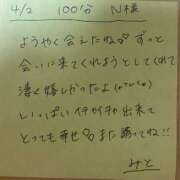 4/2 100分 N様
ようやく会えたね♂ ずっと
会いに来てくれようとしてくれて
凄く嬉しかったよ(*^^*)
いっぱいイチャイチャ出来て
とっても幸せ♂また誘ってね!!
みと